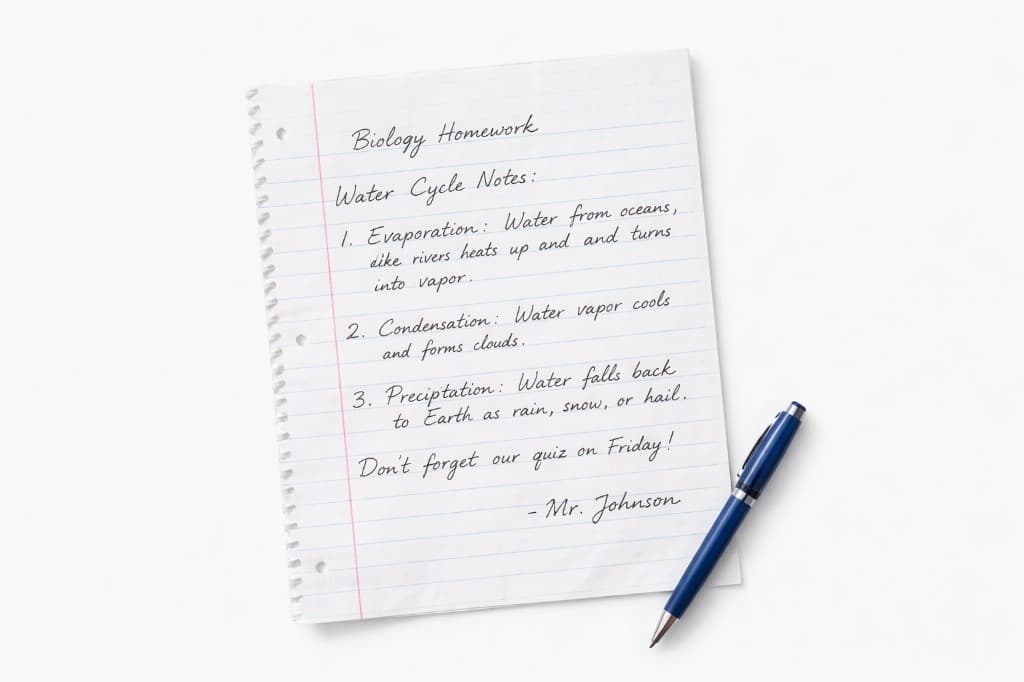 Biology Homework
Water Cycle Notes:
1. Evaporation: Water from oceans,
like rivers heats up and and turns
into vapor.
2. Condensation: Water vapor cools
and forms clouds.
3. Preciptation: Water falls back
to Earth as rain, snow, or hail.
Don't forget our quiz on Friday!
- Mr. Johnson